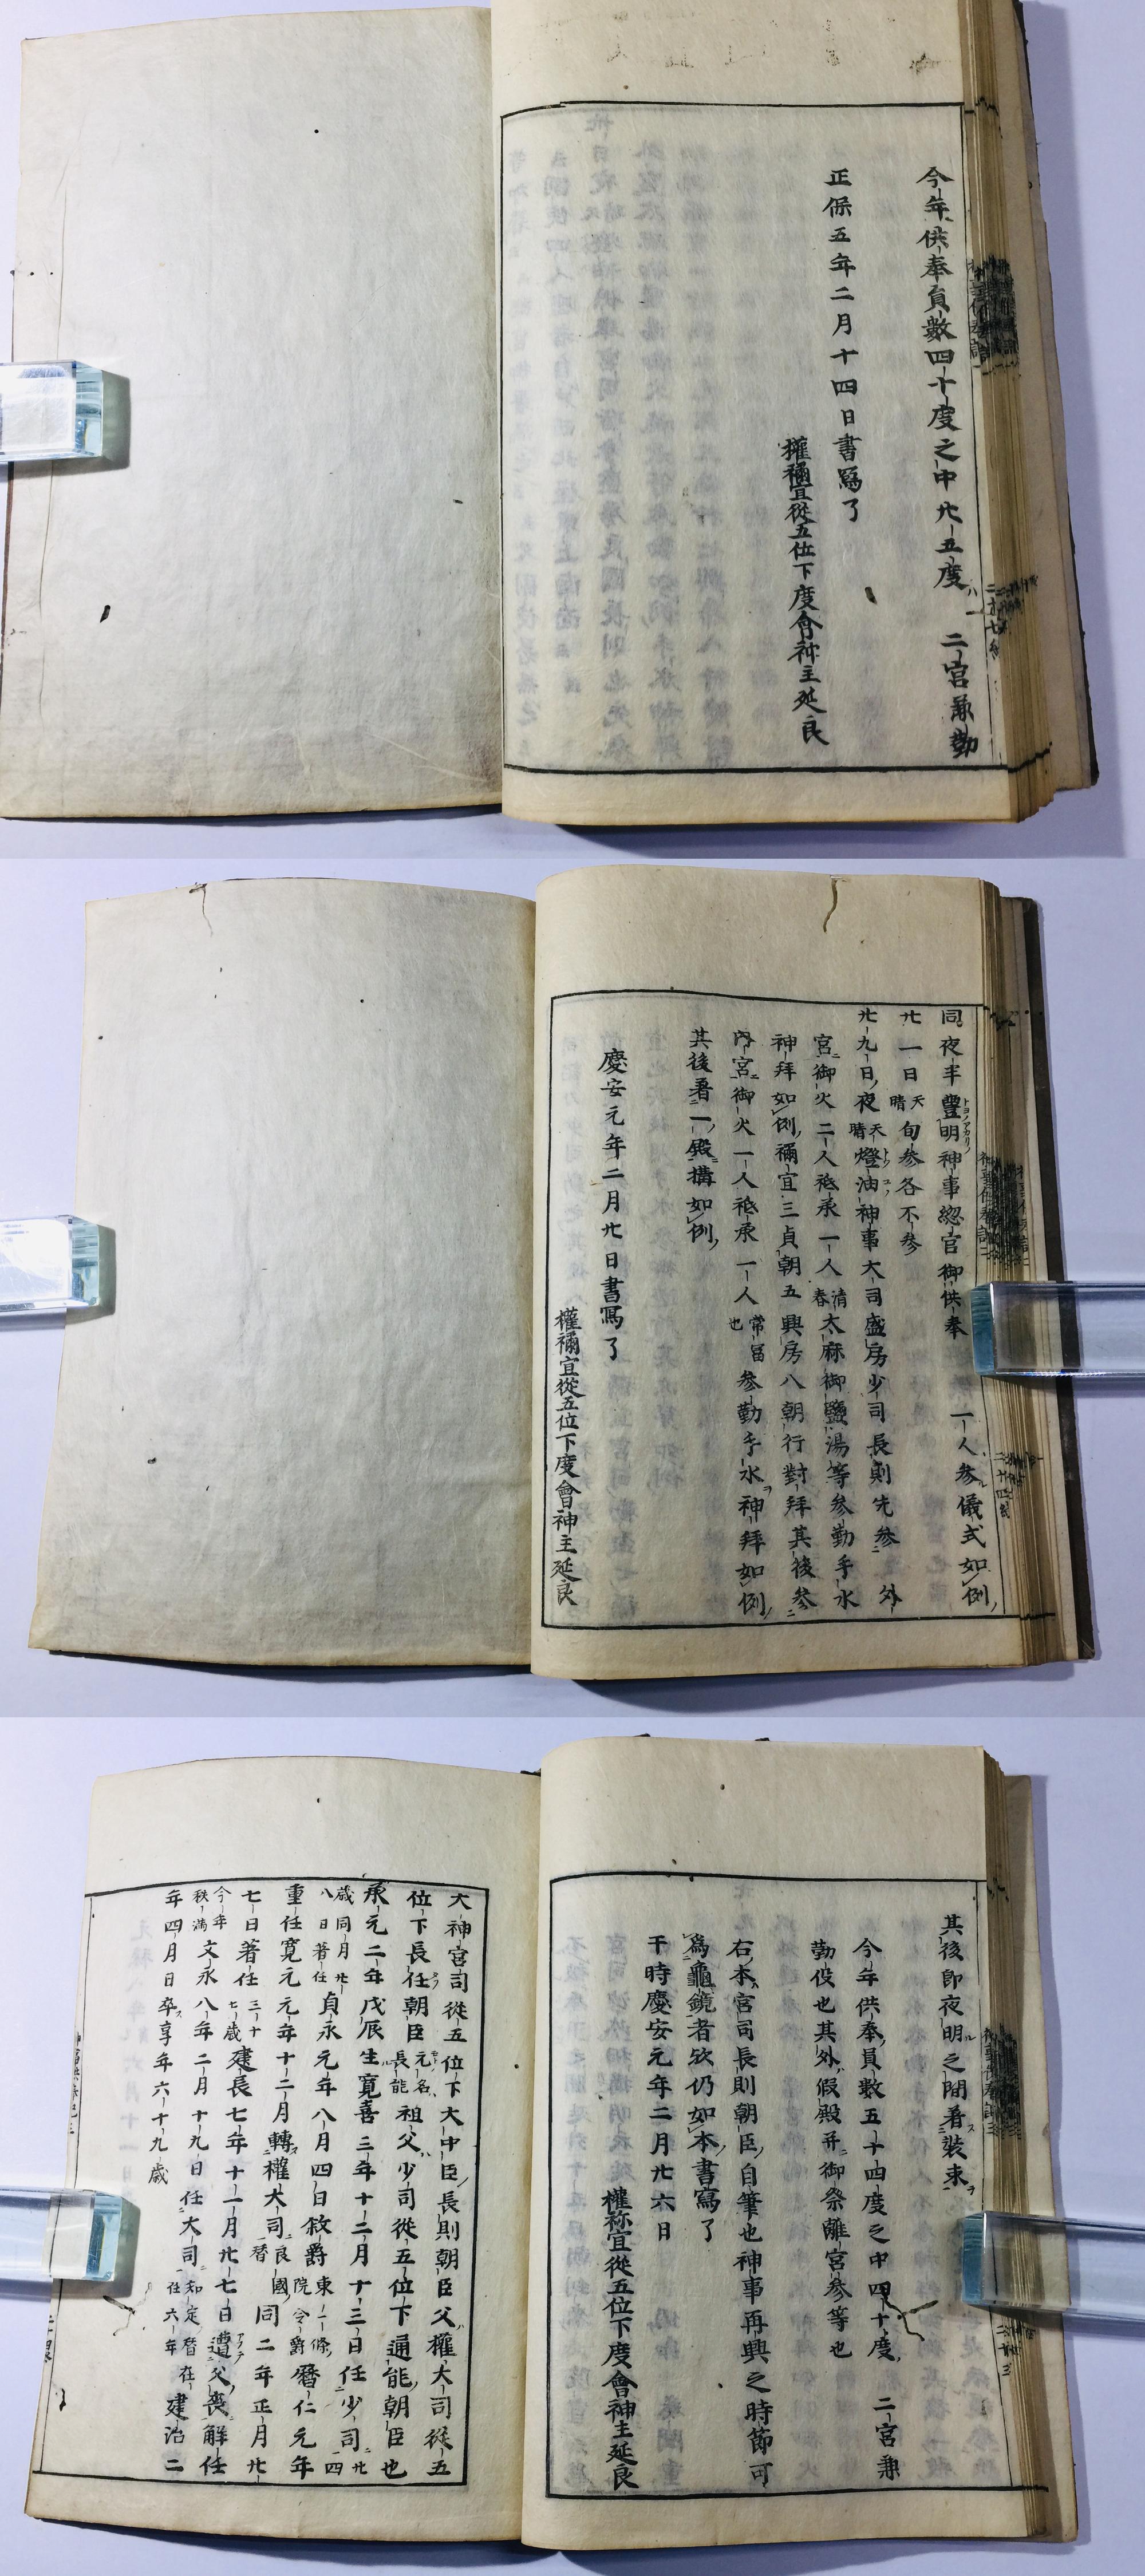 今年供奉員數四十度之中廿五度 二宮兼勤
正保五年二月十四日書寫了
權禰宜從五位下度會神主延良
同夜半豐明神事惣官御供奉 一人參儀式如例
廿一日天晴旬參各不參
廿九日夜天晴燈油神事大司盛房少司長則先參外
宮御火二人祗承一人清春太麻御鹽湯等參勤手水
神拜如例禰宜三貞朝五興房八朝行對拜其後參
內宮御火一人祗承一人常冨也參勤手水神拜如例
其後著一殿搆如例
慶安元年二月廿日書寫了
權禰宜從五位下度會神主延良
其後卽夜明之間着裝束
今年供奉員數五十四度之中四十度 二宮兼
勤役也其外假殿幷御祭離宮參等也
右本宮司長則朝臣自筆也神事再興之時節可
爲龜鏡者欤仍如本書寫了
干時慶安元年二月廿六日
權祢宜從五位下度會神主延良
大神宮司從五位下大中臣長則朝臣父權大司從五
位下長任朝臣元名長能祖父少司從五位下通能朝臣也
承元二年戊辰生寬喜三年十二月十三日任少司廿四
歲同月廿八日著任貞永元年八月四日敘爵東一條院令爵曆仁元年
重任寬元元年十二月轉權大司良國替同二年正月廿
七日著任三十七歲建長七年十一月廿七日遭父喪解任
今年秩滿文永八年二月十九日任大司知定替在任六年建治二
年四月日卒享年六十九歲